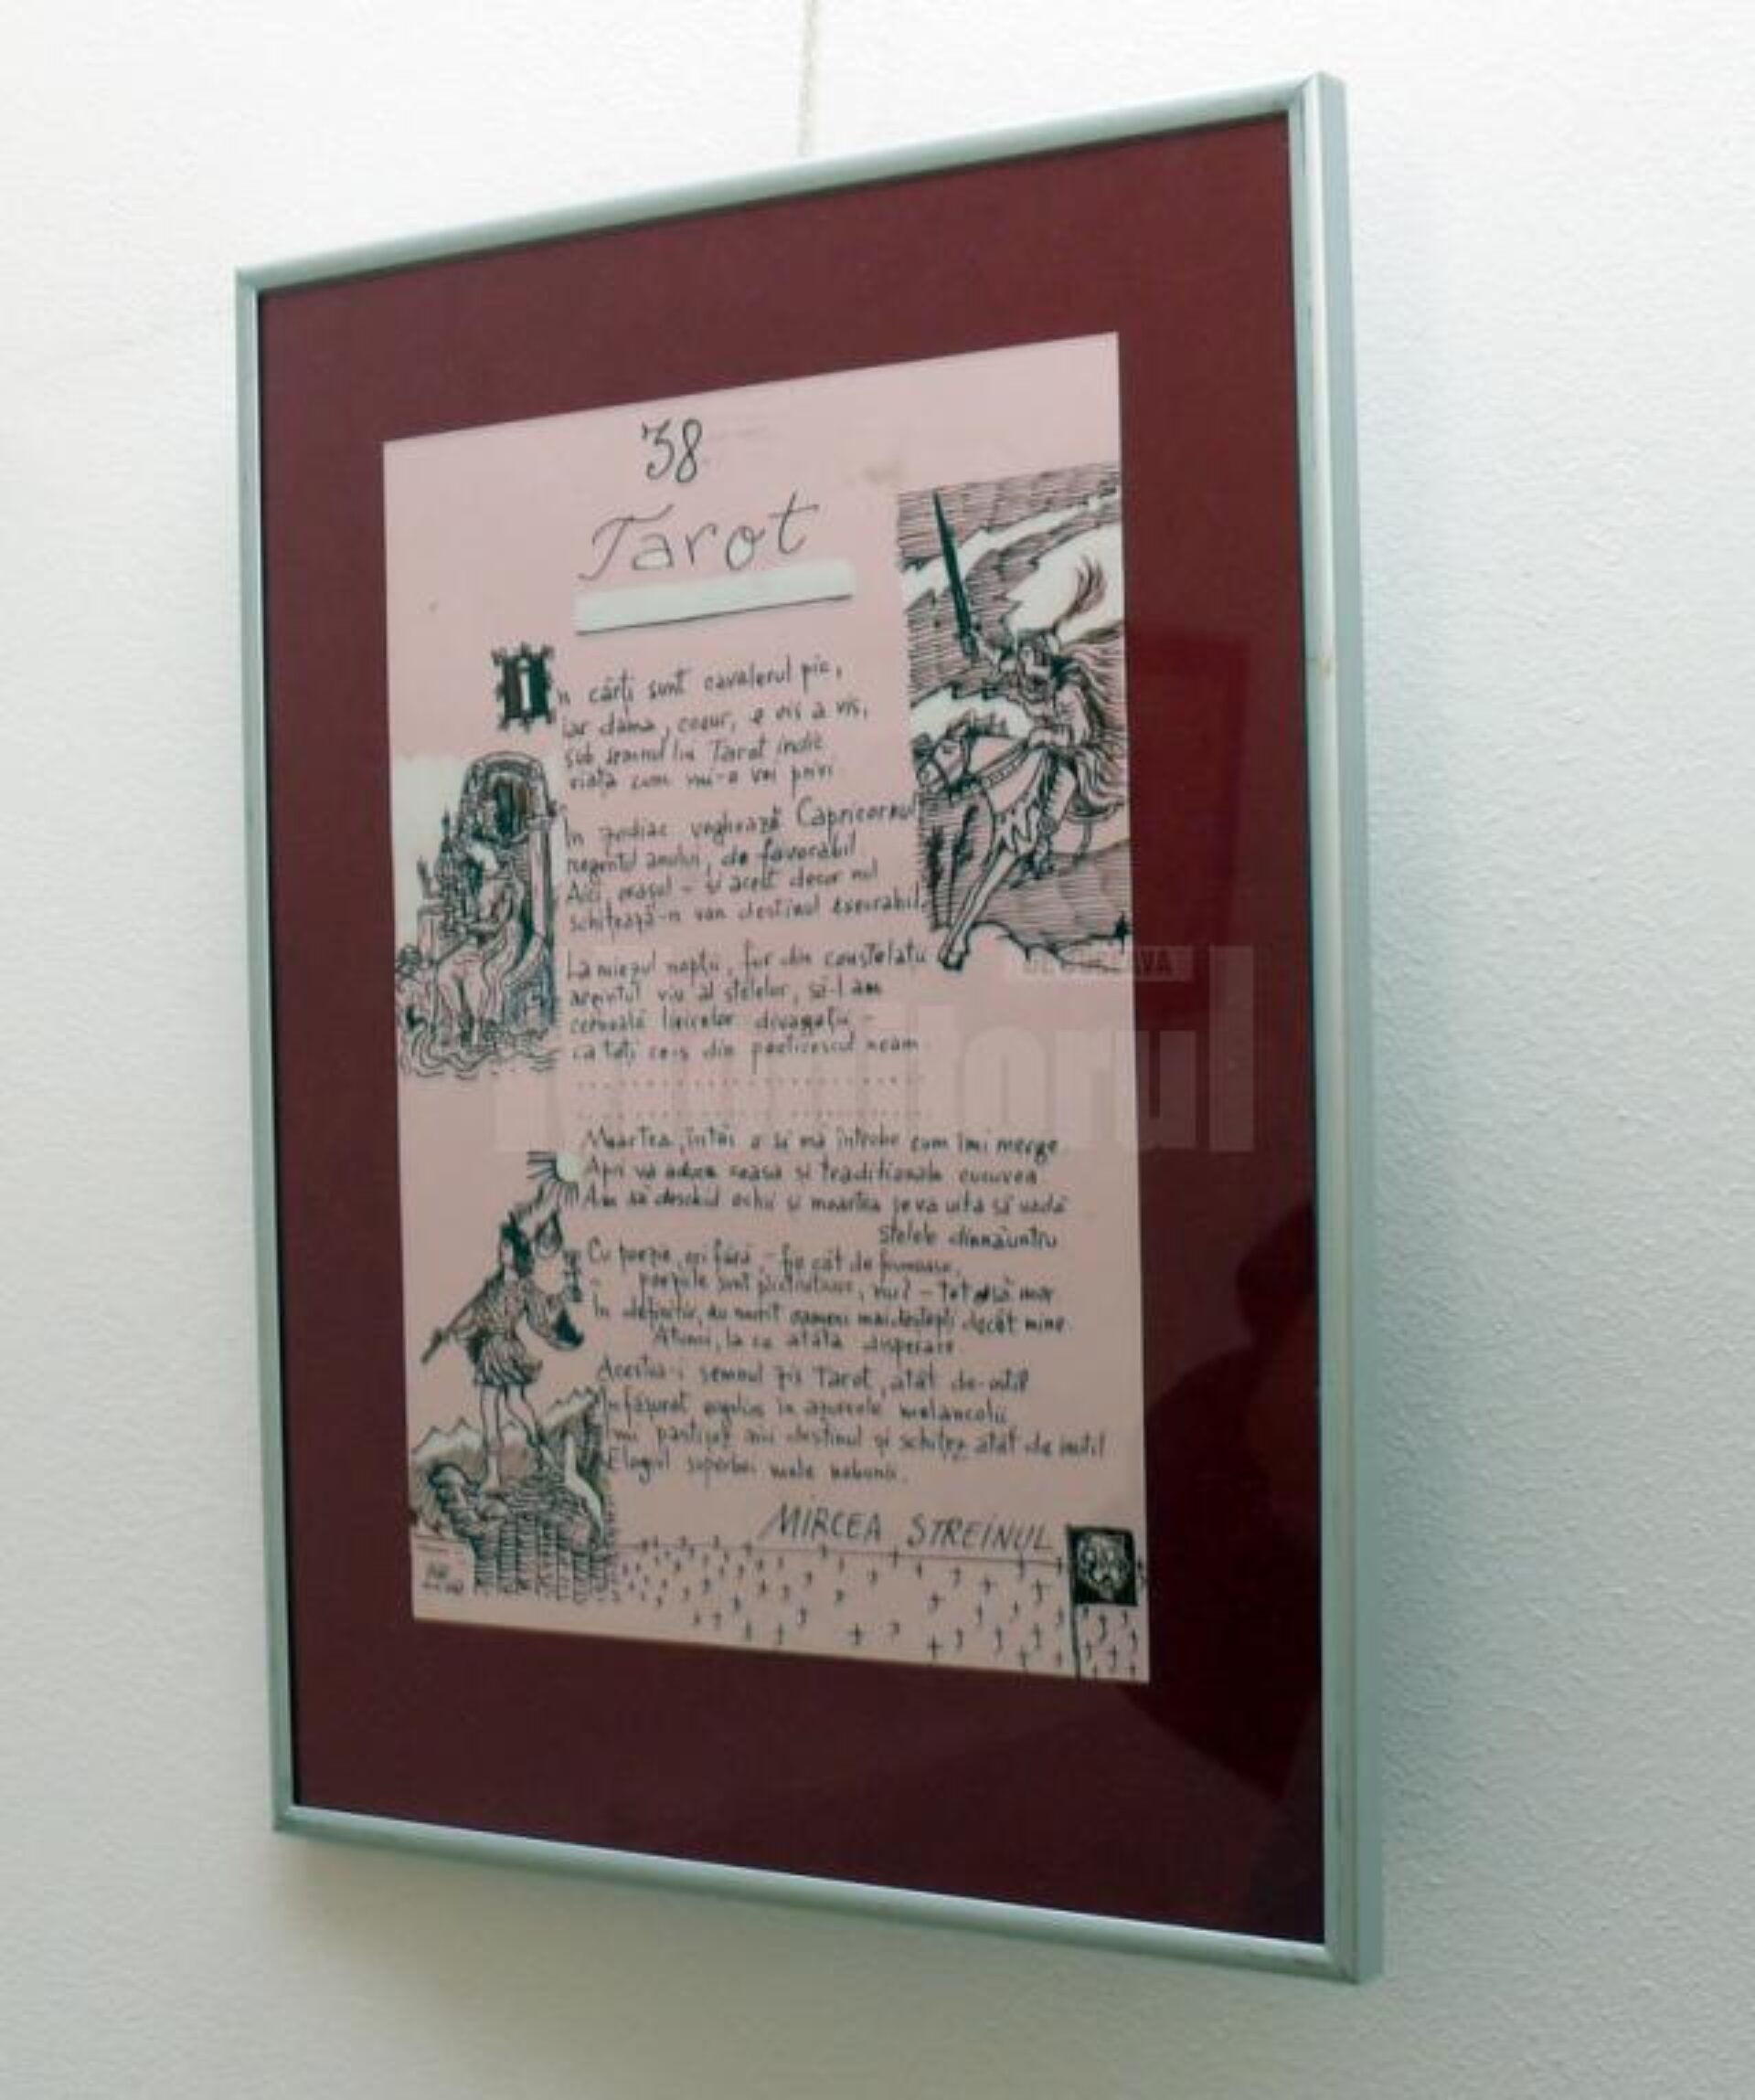 38
Tarot
În cărți sunt cavalerul pic,
iar dama, coeur, e vis a vis,
sub semnul lui Tarot indic
viața cum mi-o voi privi
În zodiac veghează Capricornul
regentul anului, de favorabil
Aici, orașul – și acest decor nul
schițează-n van destinul execrabil.
La miezul nopții, fur din constelații
argintul viu al stelelor, să-l am
cerneală liricelor divagații –
ca toți ce-s din poeticescul neam.
Moartea, întâi o să mă întrebe cum îmi merge
Apoi va aduce coasa și tradiționala cucuvea
Am să deschid ochii și moartea se va uita să vadă
Stelele dinnăuntru
Cu poezie, ori fără, – fie cât de frumoase,
poeziile sunt nu? – tot o să mor
În definitiv, au murit oameni mai deștepți decât mine.
Atunci, la ce atâta disperare
Acesta-i semnul zis Tarot, atât de-ostil
Înfășurat în azurele melancolii
Îmi aici destinul și schițez atât de inutil
Elogiul superbei mele nebunii.
MIRCEA STREINUL
Monitorul
SUCEAVA